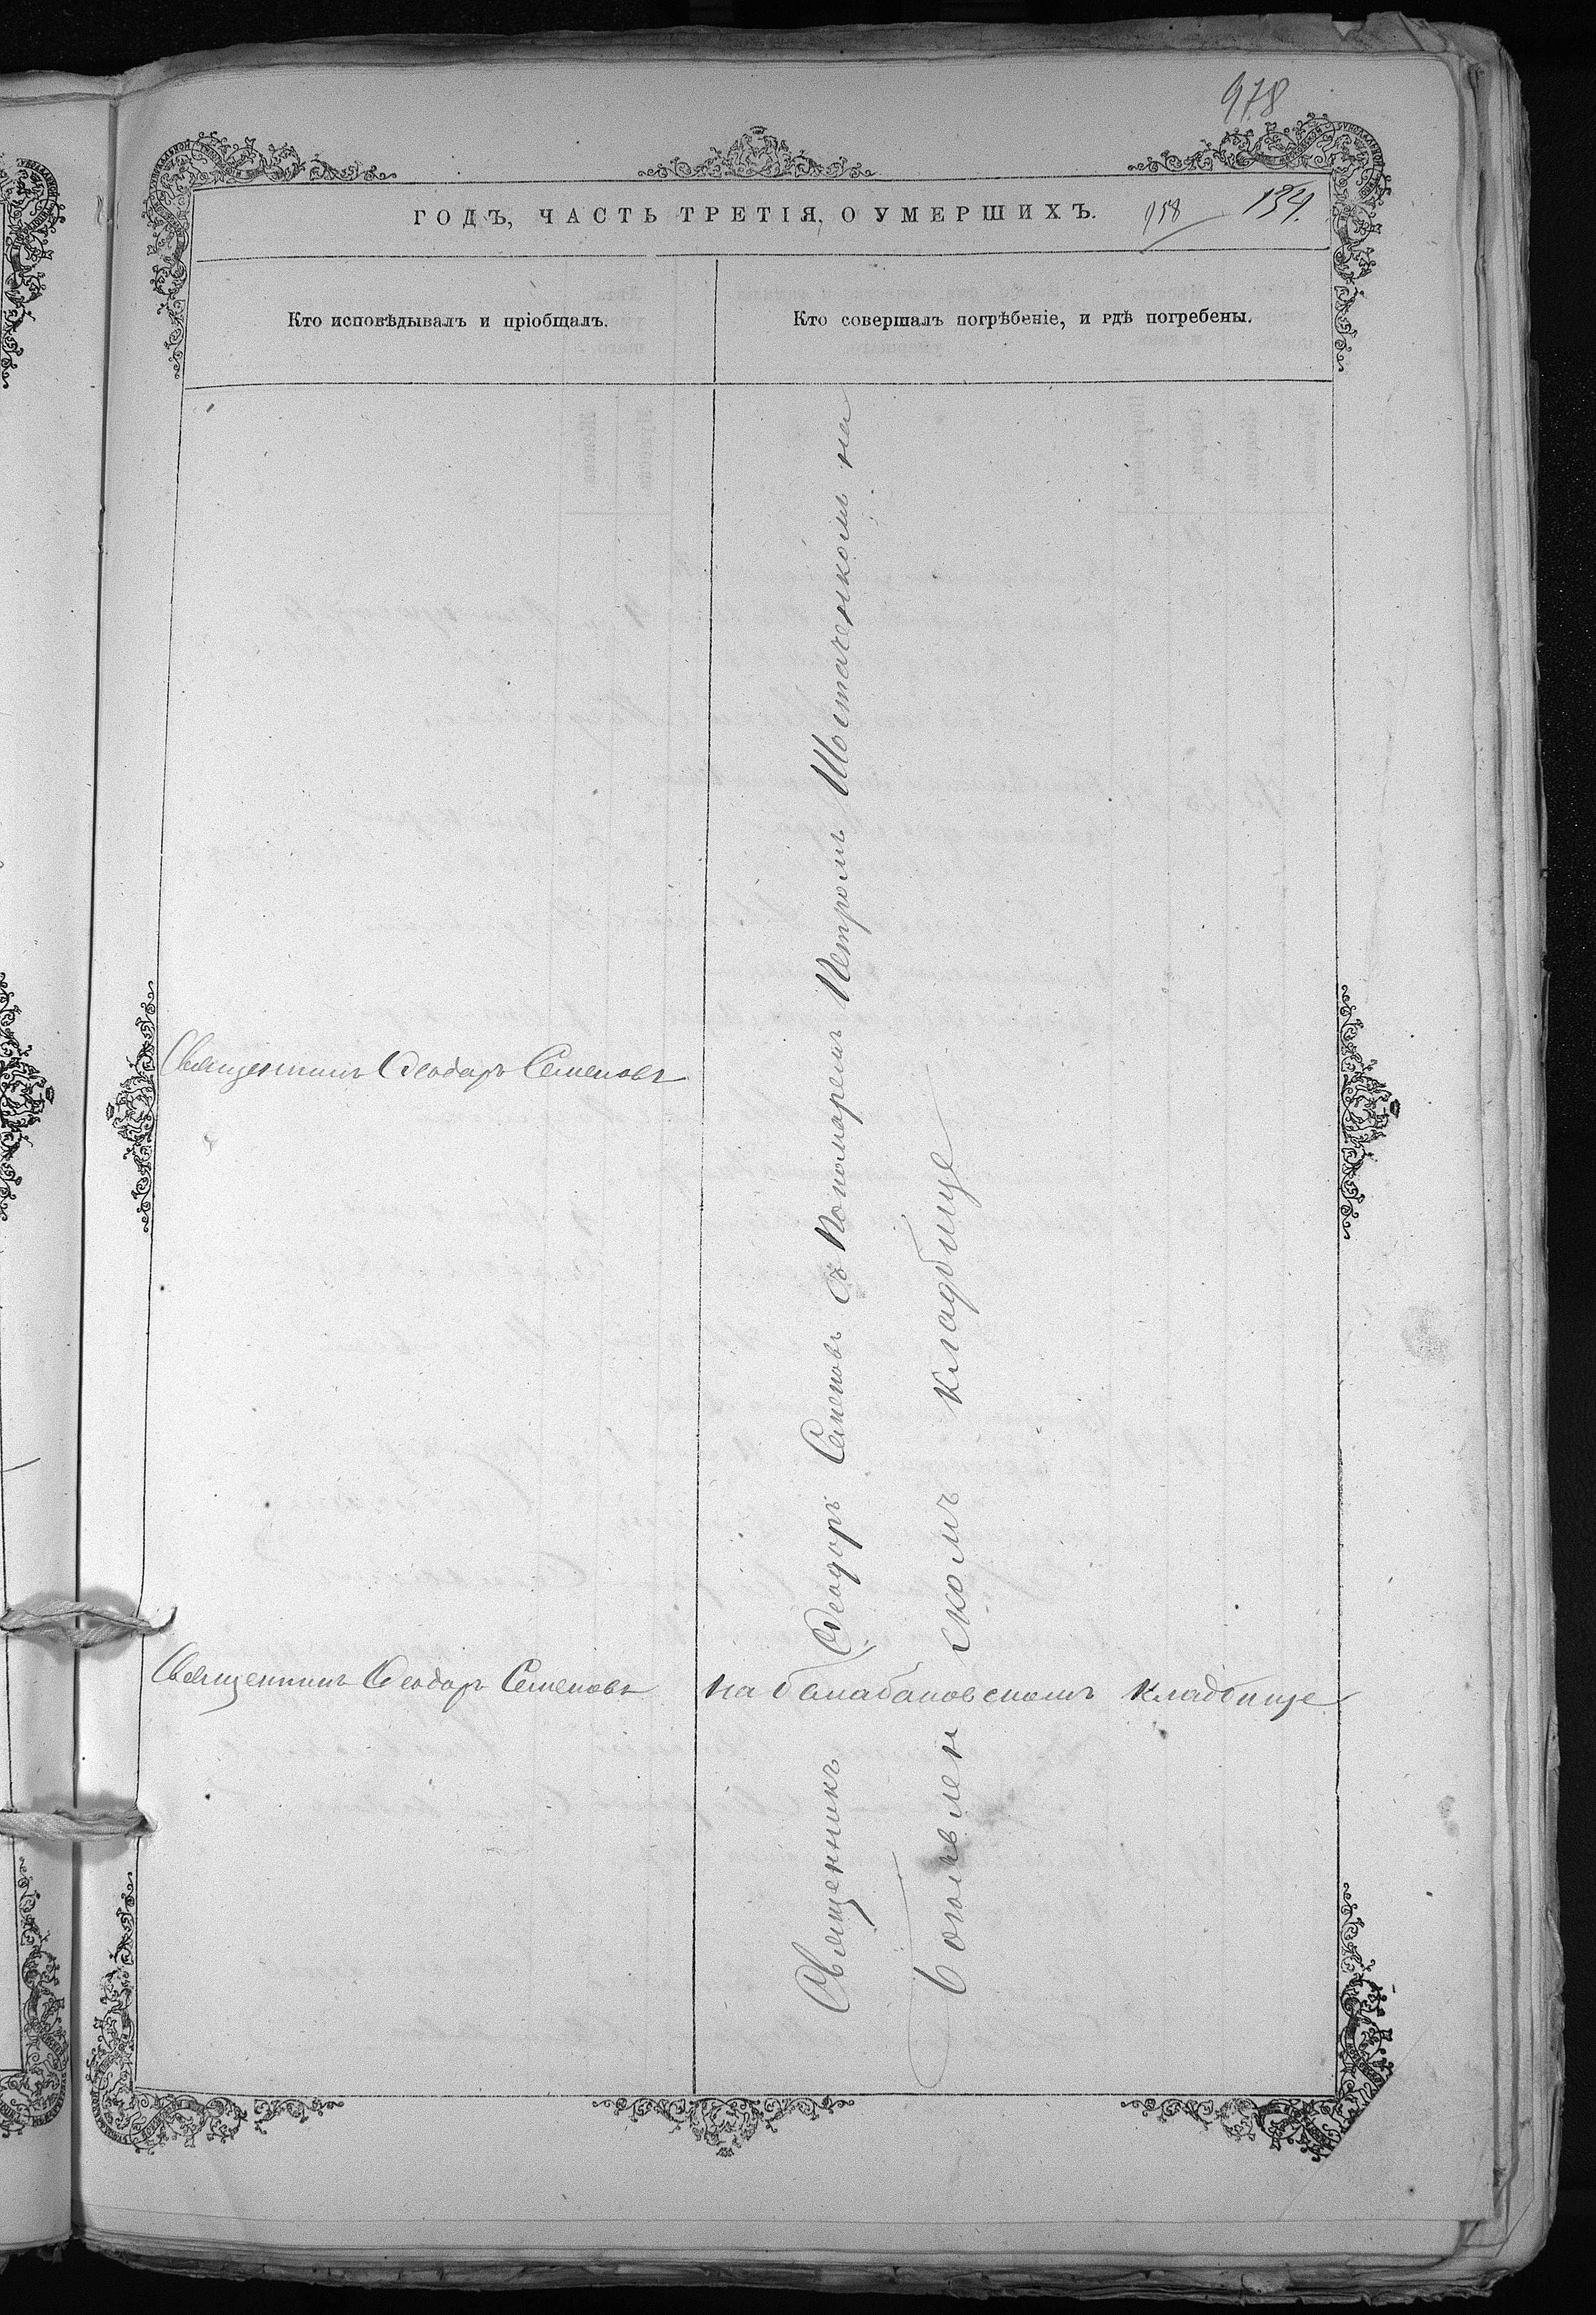 978
ГОДЪ, ЧАСТЬ ТРЕТІЯ, О УМЕРШИХЪ.
958
134.
Кто исповѣдывалъ и пріобщалъ.
Кто совершалъ погрѣбеніе, и гдѣ погребены.
Священникъ Ѳеодоръ Семеновъ
Священникъ Ѳеодоръ Семеновъ
на балабановскомъ кладбище
Священникъ Ѳеодоръ Семеновъ съ Пономаремъ Петромъ Шостаченкомъ на
скомъ кладбище